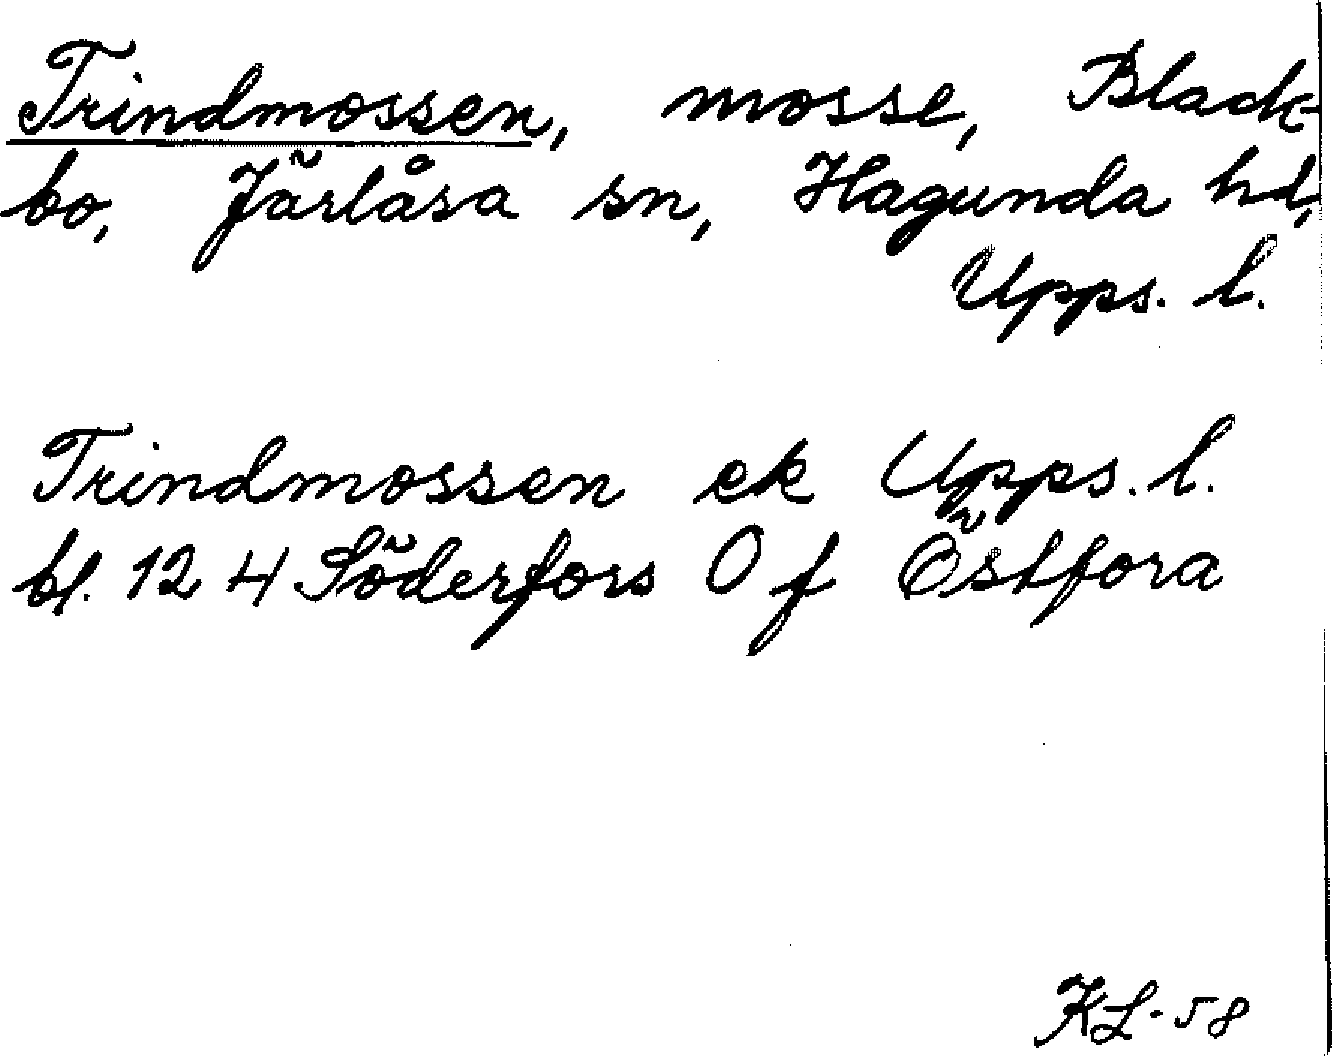 Trindmossen, mosse, Black-
bo, Järlåsa sn, Hagunda hd,
Upps. l.
Trindmossen ek Upps. l.
bl. 12 4 Söderfors O f Östfora
KL-58